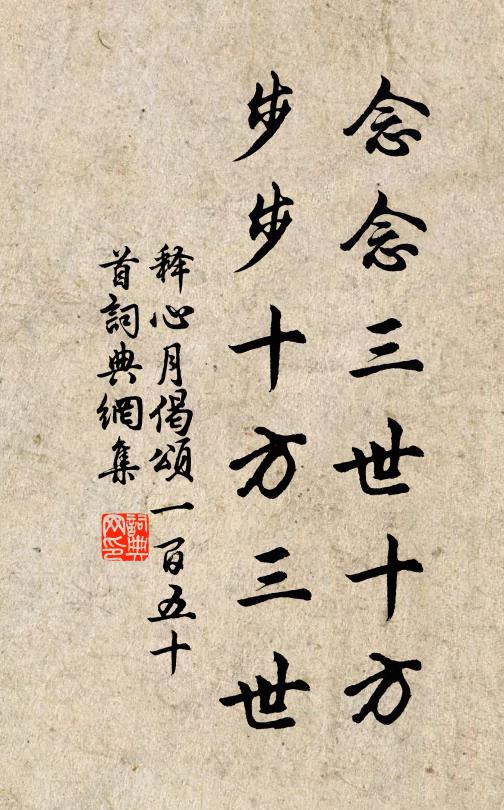 念念三世十方
步步十方三世
释心月偈頌一百五十
首詞典網集
詞典网印